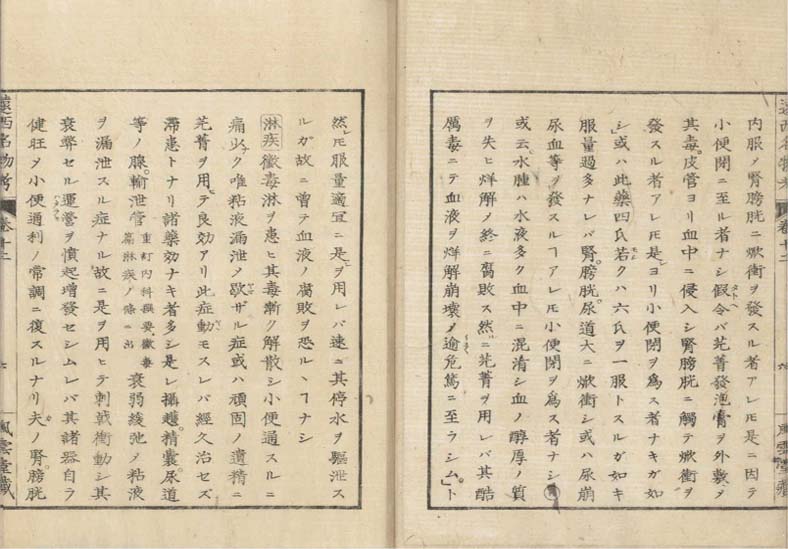 内服ノ腎膀胱ニ焮衝ヲ發スル者アレ𪜈是ニ因テ
小便閉ニ至ル者ナシ假令バ芫菁發泡膏ヲ外敷ノ
其毒皮管ヨリ血中ニ侵入シ腎膀胱ニ觸テ焮衝ヲ
發スル者アレ𪜈是ヨリ小便閉ヲ爲ス者ナキガ如
シ」或ハ此藥四氏若クハ六氏ヲ一服トスルガ如キ
服量過多ナレバ腎膀胱尿道大ニ焮衝シ或ハ尿崩
尿血等ヲ發スルヿアレ𪜈小便閉ヲ爲ス者ナシ
或云水腫ハ水液多ク血中ニ混淆シ血ノ醇厚ノ質
ヲ失ヒ烊解ノ終ニ腐敗ス然ニ芫菁ヲ用レバ其酷
厲毒ニテ血液ヲ烊解崩壊ノ逾危篤ニ至ラシム」ト
然レ𪜈服量適宜ニ是ヲ用レバ速ニ其停水ヲ驅泄ス
ルガ故ニ曾テ血液ノ腐敗ヲ恐ルヽヿナシ
淋疾黴毒淋ヲ患ヒ其毒漸ク解散シ小便通スルニ
痛必ク唯粘液漏泄ノ歇ザル症或ハ頑固ノ遺精ニ
芫菁ヲ用ヒテ良効アリ此症動モスレバ經久治セズ
滯患トナリ諸藥効ナキ者多シ是レ攝護精囊尿道
等ノ腺輸泄管
重訂内科撰要黴毒
篇淋疾ノ條ニ出
衰弱緩弛ノ粘液
ヲ漏泄スル症ナル故ニ是ヲ用ヒテ刺戟衝動シ其
衰弊セル運營ヲ憤起增發セシムレバ其諸器自ラ
健旺ノ小便通利ノ常調ニ復スルナリ夫ノ腎膀胱
遠西名物考
卷十二
風雲堂藏